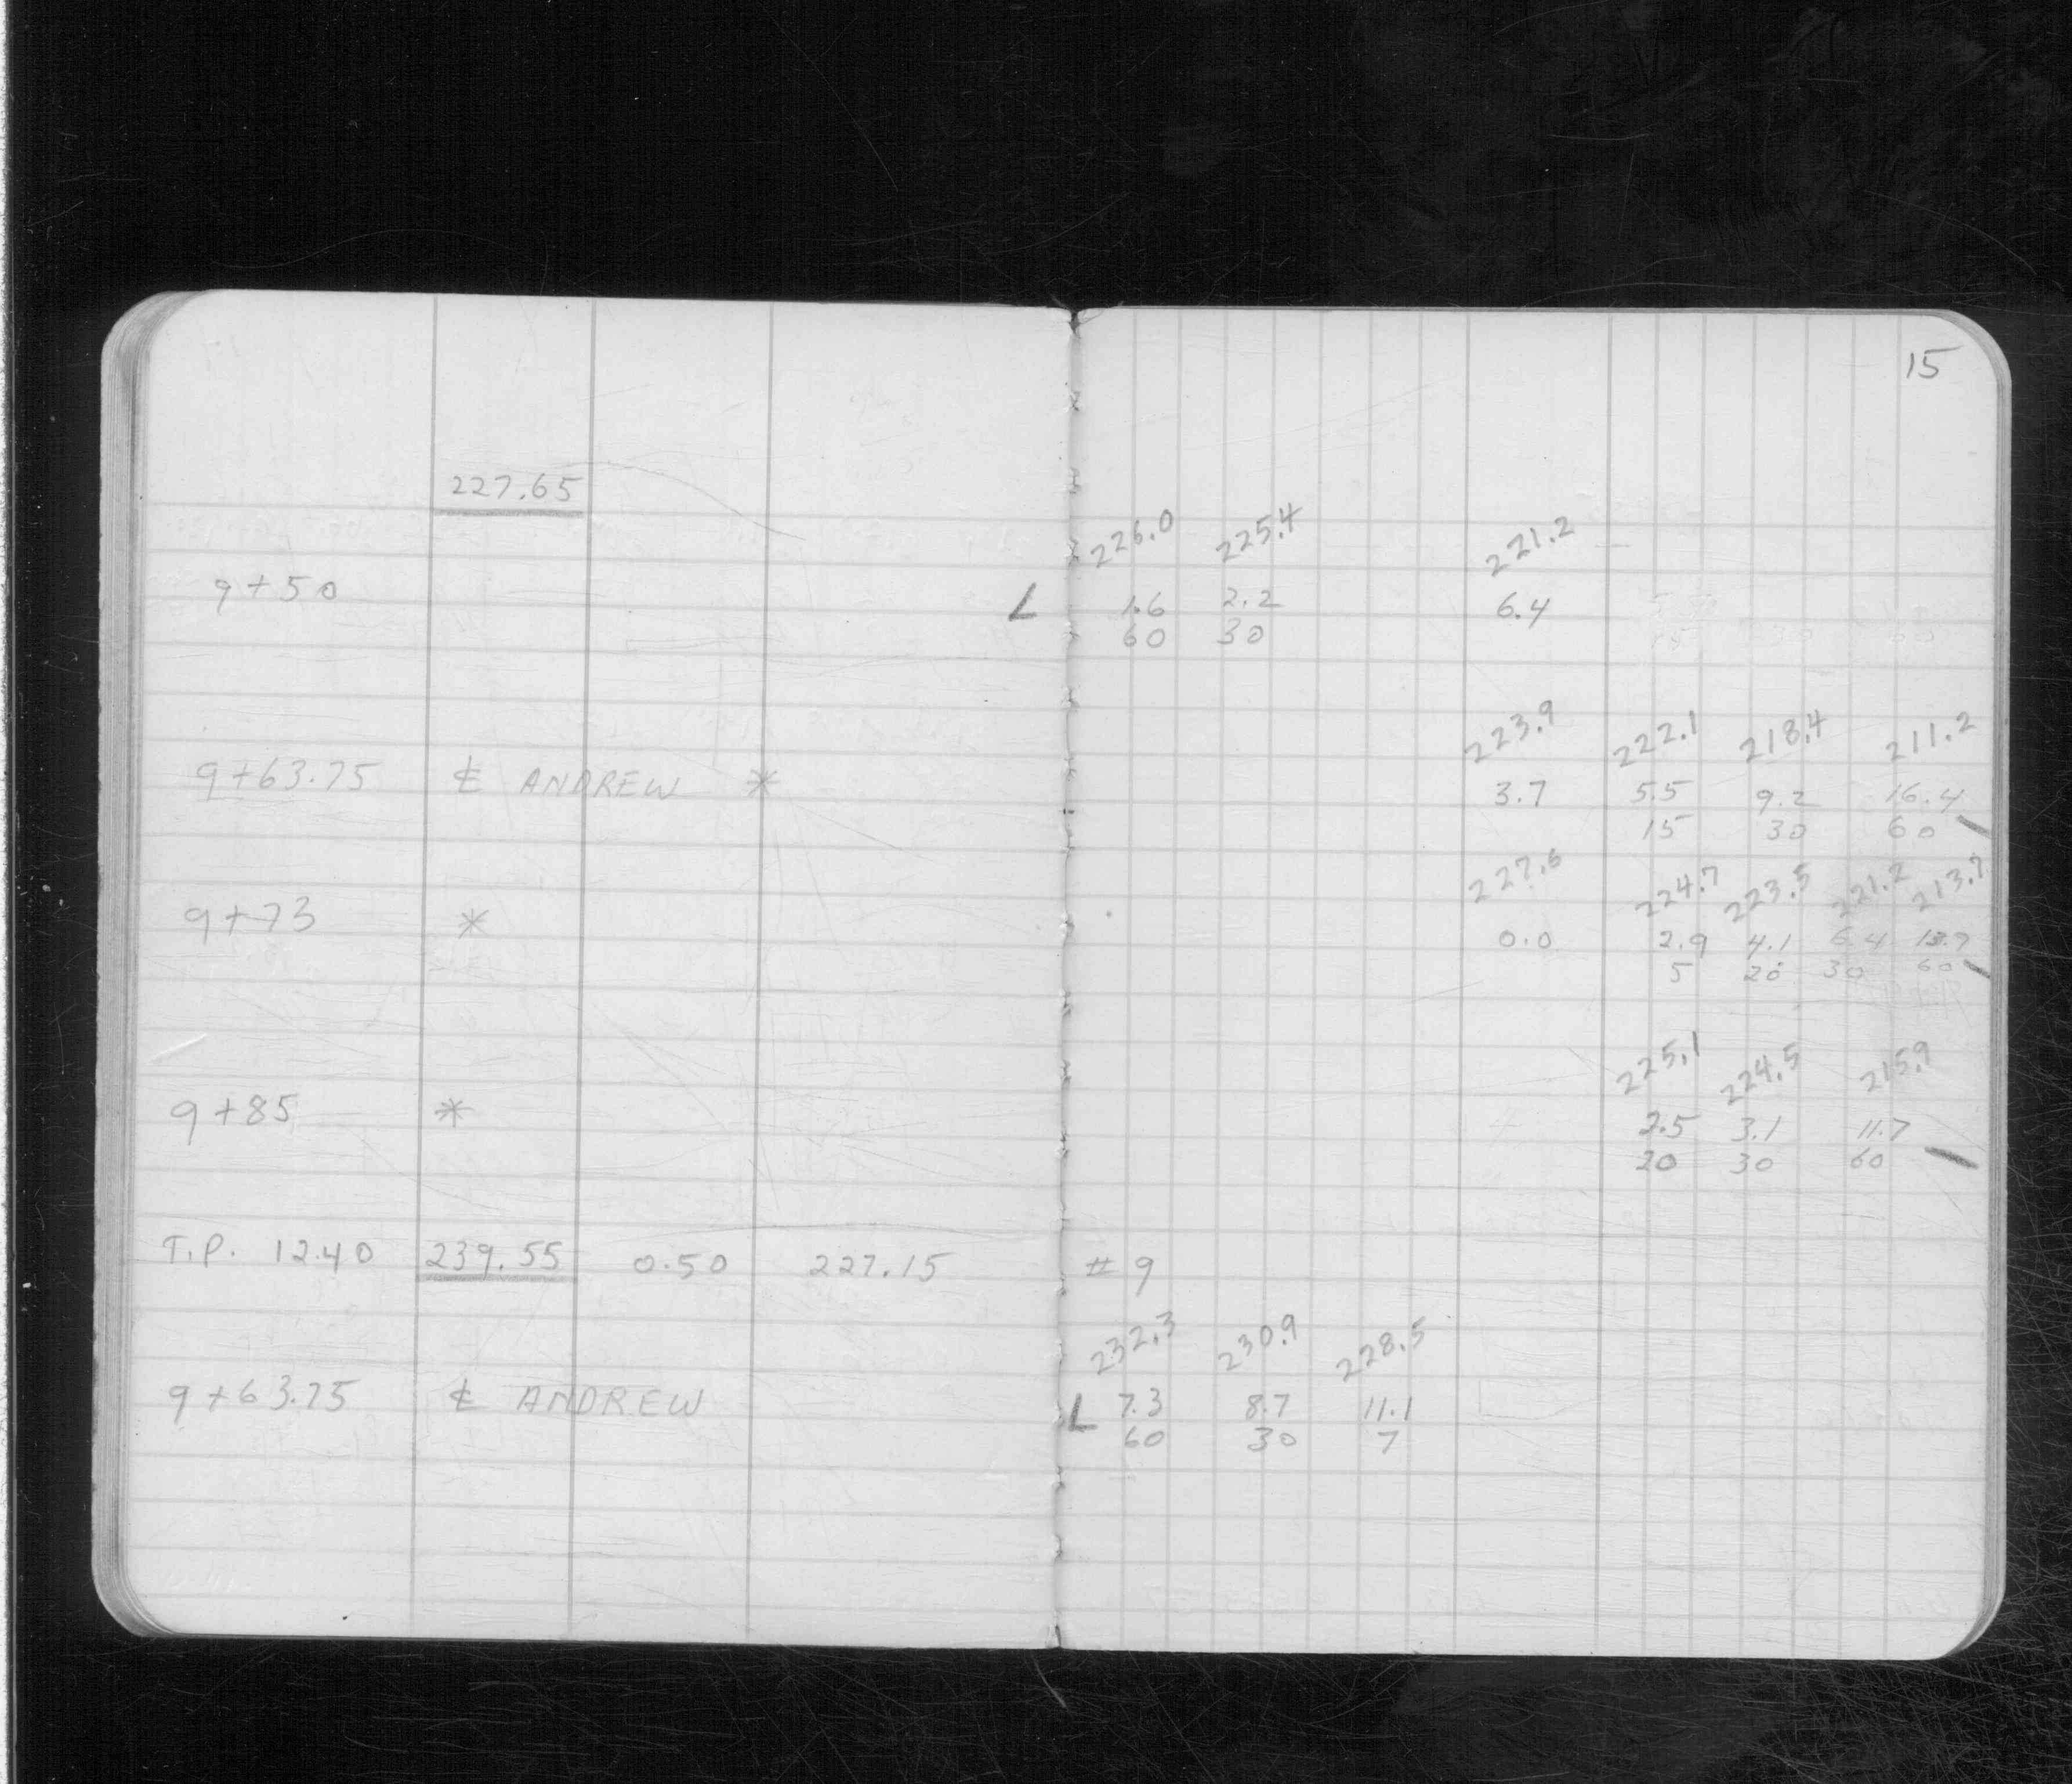 15
227.65
226.0 225.4 221.2
9+50 L 1.6 2.2 6.4
60 30
223.9 222.1 218.4 211.2
9+63.75 ⅊ ANDREW * 3.7 5.5 9.2 16.4
15 30 60
227.6 224.7 223.5 221.2 213.7
9+73 * 0.0 2.9 4.1 6.4 13.9
5 20 30 60
225.1 224.5 215.9
9+85 * 2.5 3.1 11.7
20 30 60
T.P. 12.40 239.55 0.50 227.15 # 9
232.3 230.9 228.5
9+63.75 ⅊ ANDREW L 7.3 8.7 11.1
60 30 7